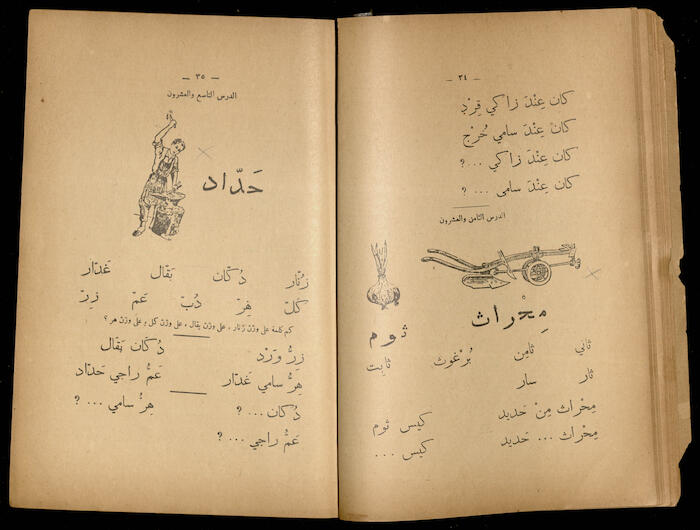 — ٣٤ —
كان عِنْدَ زاكي قِرْد
كان عِنْدَ سامي خُرْج
كان عِنْدَ زاكي ... ?
كان عِنْدَ سامي ... ?
الدرس الثامن والعشرون
مِحْراث ثوم
ثاني ثامِن بُرْغوث ثابِت
ثار سار
مِحْراث مِنْ حَديد كيس ثوم
مِحْراث ... حَديد كيس ...
— ٣٥ —
الدرس التاسع والعشرون
حَدّاد
زنّار دُكّان بَقّال غَدّار
كلّ هِرّ دُبّ عَمّ زِرّ
كم كلمة على وزن زنّار ، على وزن بقال ، على وزن كل و على وزن هر ؟
زِرُّ وَرْد دُكّان بَقّال
هِرُّ سامي غَدّار عَمُّ راجي حَدّاد
دُكّان ... ? هِرُّ سامي ... ?
عَمُّ راجي ... ?